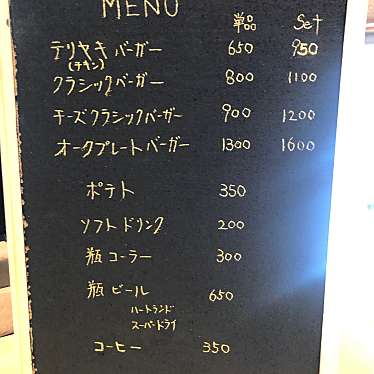 MENU
単品 Set
テリヤキバーガー 650 950
(チキン)
クラシックバーガー 800 1100
チーズクラシックバーガー 900 1200
オークプレートバーガー 1300 1600
ポテト 350
ソフトドリンク 200
瓶コーラー 300
瓶ビール 650
ハートランド
スーパードライ
コーヒー 350